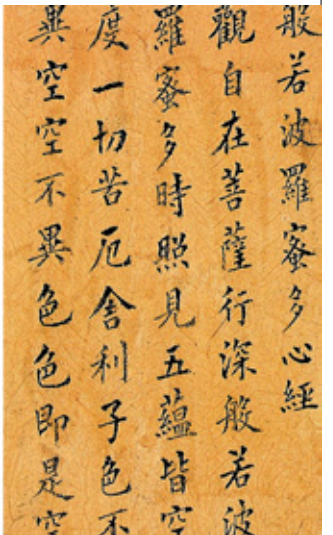 般若波羅蜜多心經
觀自在菩薩行深般若波
羅蜜多時照見五蘊皆空
度一切苦厄舍利子色不
異空空不異色色即是空